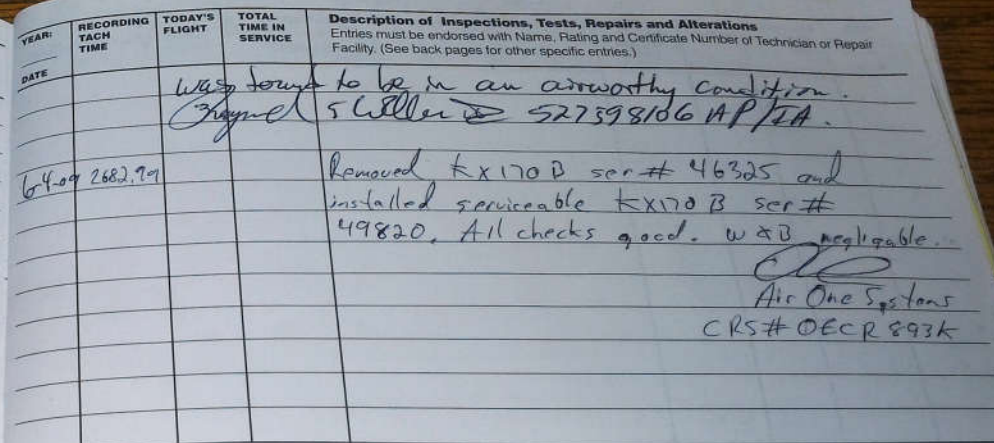 YEAR:
DATE
RECORDING TACH TIME
TODAY'S FLIGHT
TOTAL TIME IN SERVICE
Description of Inspections, Tests, Repairs and Alterations
Entries must be endorsed with Name, Rating and Certificate Number of Technician or Repair
Facility. (See back pages for other specific entries.)
was found to be in an airworthy condition.
527598106 AP/IA.
6-4-09 2682.99 Removed KX170B ser# 46325 and
installed serviceable KX170B ser#
49820. All checks good. W&B negligable.
Air One Systems
CRS# OECR893K